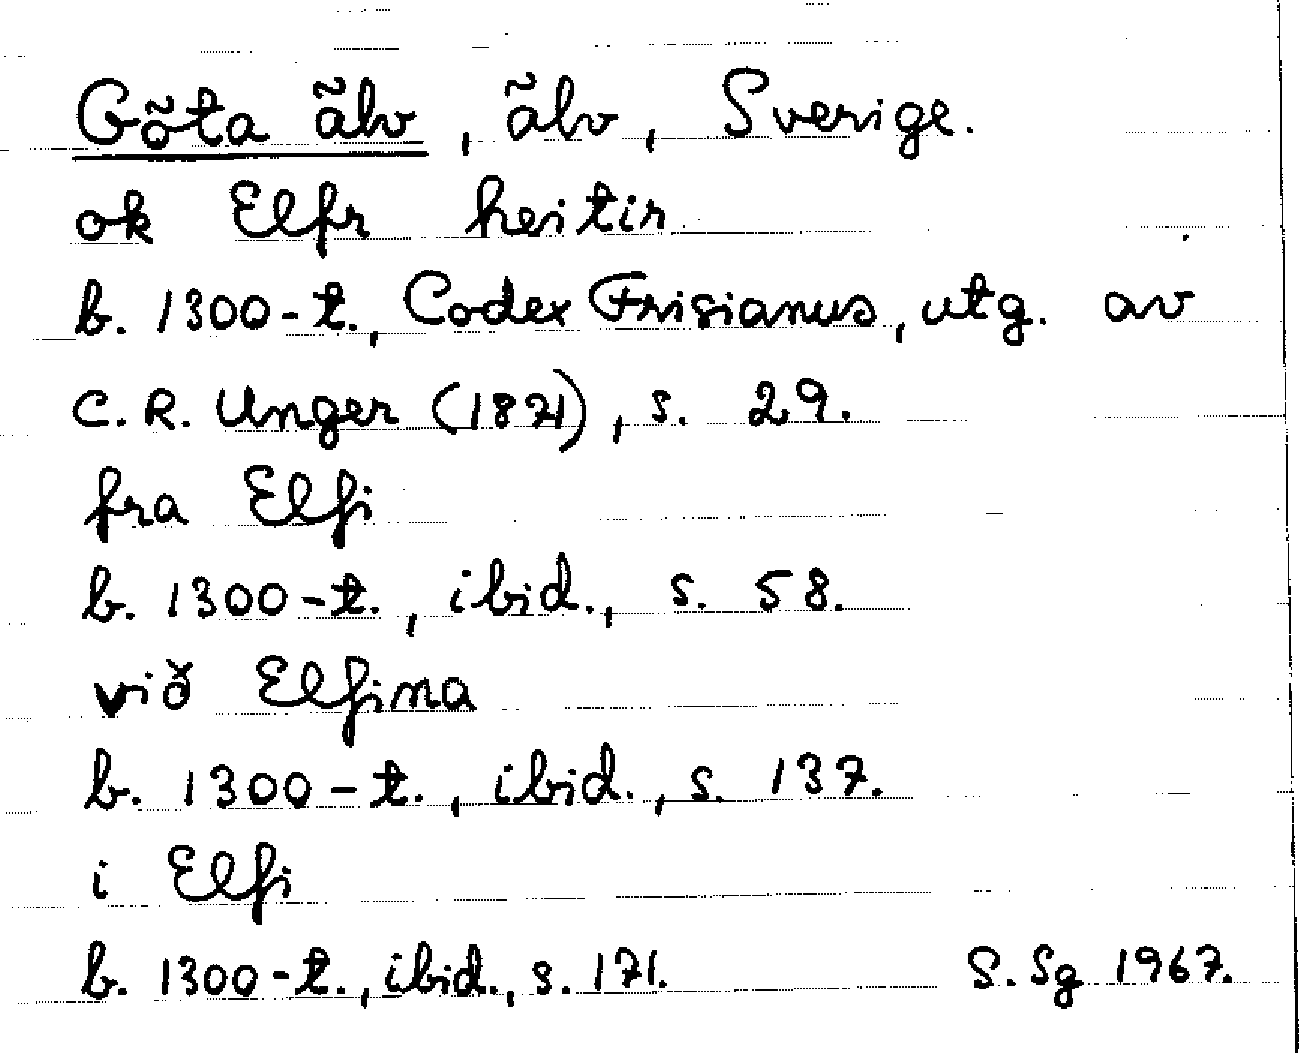 Göta älv, älv, Sverige.
ok Elfr heitir
b. 1300-t., Codex Frisianus, utg. av
C.R. Unger (1871), s. 29.
fra Elfi
b. 1300-t., ibid., s. 58.
við Elfina
b. 1300-t., ibid., s. 137.
i Elfi
b. 1300-t., ibid., s. 171. S. Sg 1967.